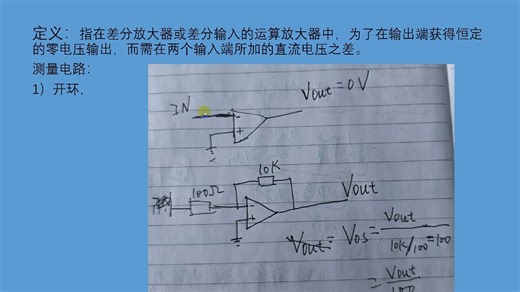 定义：指在差分放大器或差分输入的运算放大器中，为了在输出端获得恒定
的零电压输出，而需在两个输入端所加的直流电压之差。
测量电路：
1）开环，
IN
Vout=0V
-
+
10K
100Ω
Vout
-
+
Vout= Vos= Vout
10K/100=100
= Vout